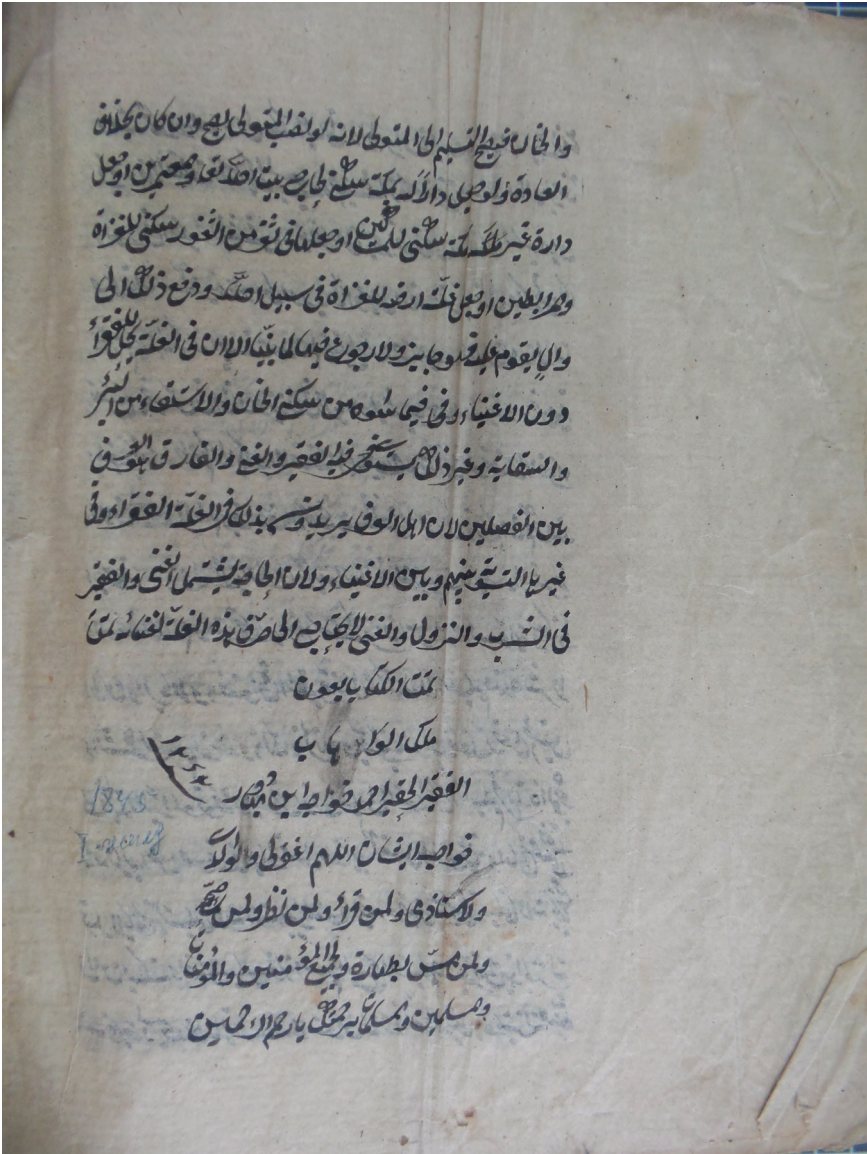 والخان فيصح التسليم الى المتولى لانه لو نصب المتولى يصح وان كان بخلاف
العادة ولو جعل دارا له بمكة سكنى لحاج بيت الله تعا والمعتمرين او جعل
داره غير مكة سكنى للمساكين او جعلها فى ثغر من الثغور سكنى للغزاة
ومرابطين او جعل غلة ارضه للغزاة فى سبيل الله ودفع ذلك الى
وال يقوم عليه فهو جايز ولا رجوع فيها لما بينا الا ان فى الغلة يحل للفقرآء
دون الاغنياء وفى فيما سواه من سكنى الخان والاستقاء من البئر
والسقاية وغير ذلك يستوى فيه الفقير والغنى والفارق العرف
بين الفصلين لان اهل العرف يريدون بذلك فى الغلة الفقراء وفى
غيرها التسوية بينهم وبين الاغنياء ولان الحاجة يشتمل الغنى والفقير
فى الشرب والنزول والغنى لا يحتاج الى صرف هذه الغلة لغنائه تمت
تمت الكتاب بعون
ملك الوهاب
١٢٥٢
الفقير الحقير احمد خواجه ابن
1843
خواجه ايشان اللهم اغفرلى ولوالدى
ولاستاذى ولمن قرأ ولمن نظر ولمن
ولمن مس بطهارة ولجميع المؤمنين والمؤمنات
ومسلمين ومسلمات برحمتك يا ارحم الراحمين